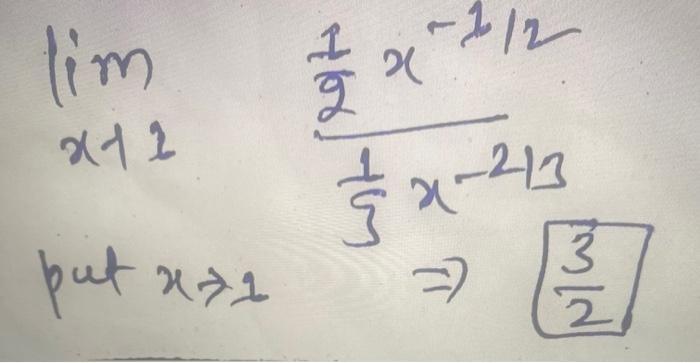 lim 1/2 x^-1/2
x→1 1/3 x^-2/3
put x→1 ⇒ 3/2